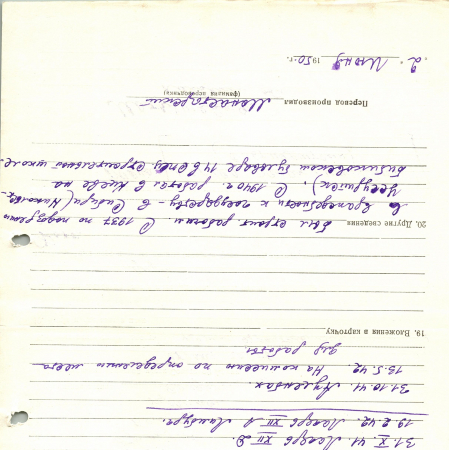 31.X.41 Лагерь XII D.
19.2.42. Лагерь XII A Лимбург.
31.10.41
15.5.42. На комиссию по определению места
для работы
19. Вложения в карточку
20. Другие сведения Был строит. рабочим С 1937 по подозрению
в враждебности к государству - в Сибири
С 1940г. работал в Киеве на
бульваре 14 в строительной школе.
Перевод произвел
(фамилия переводчика)
"2" Июня 1950 г.